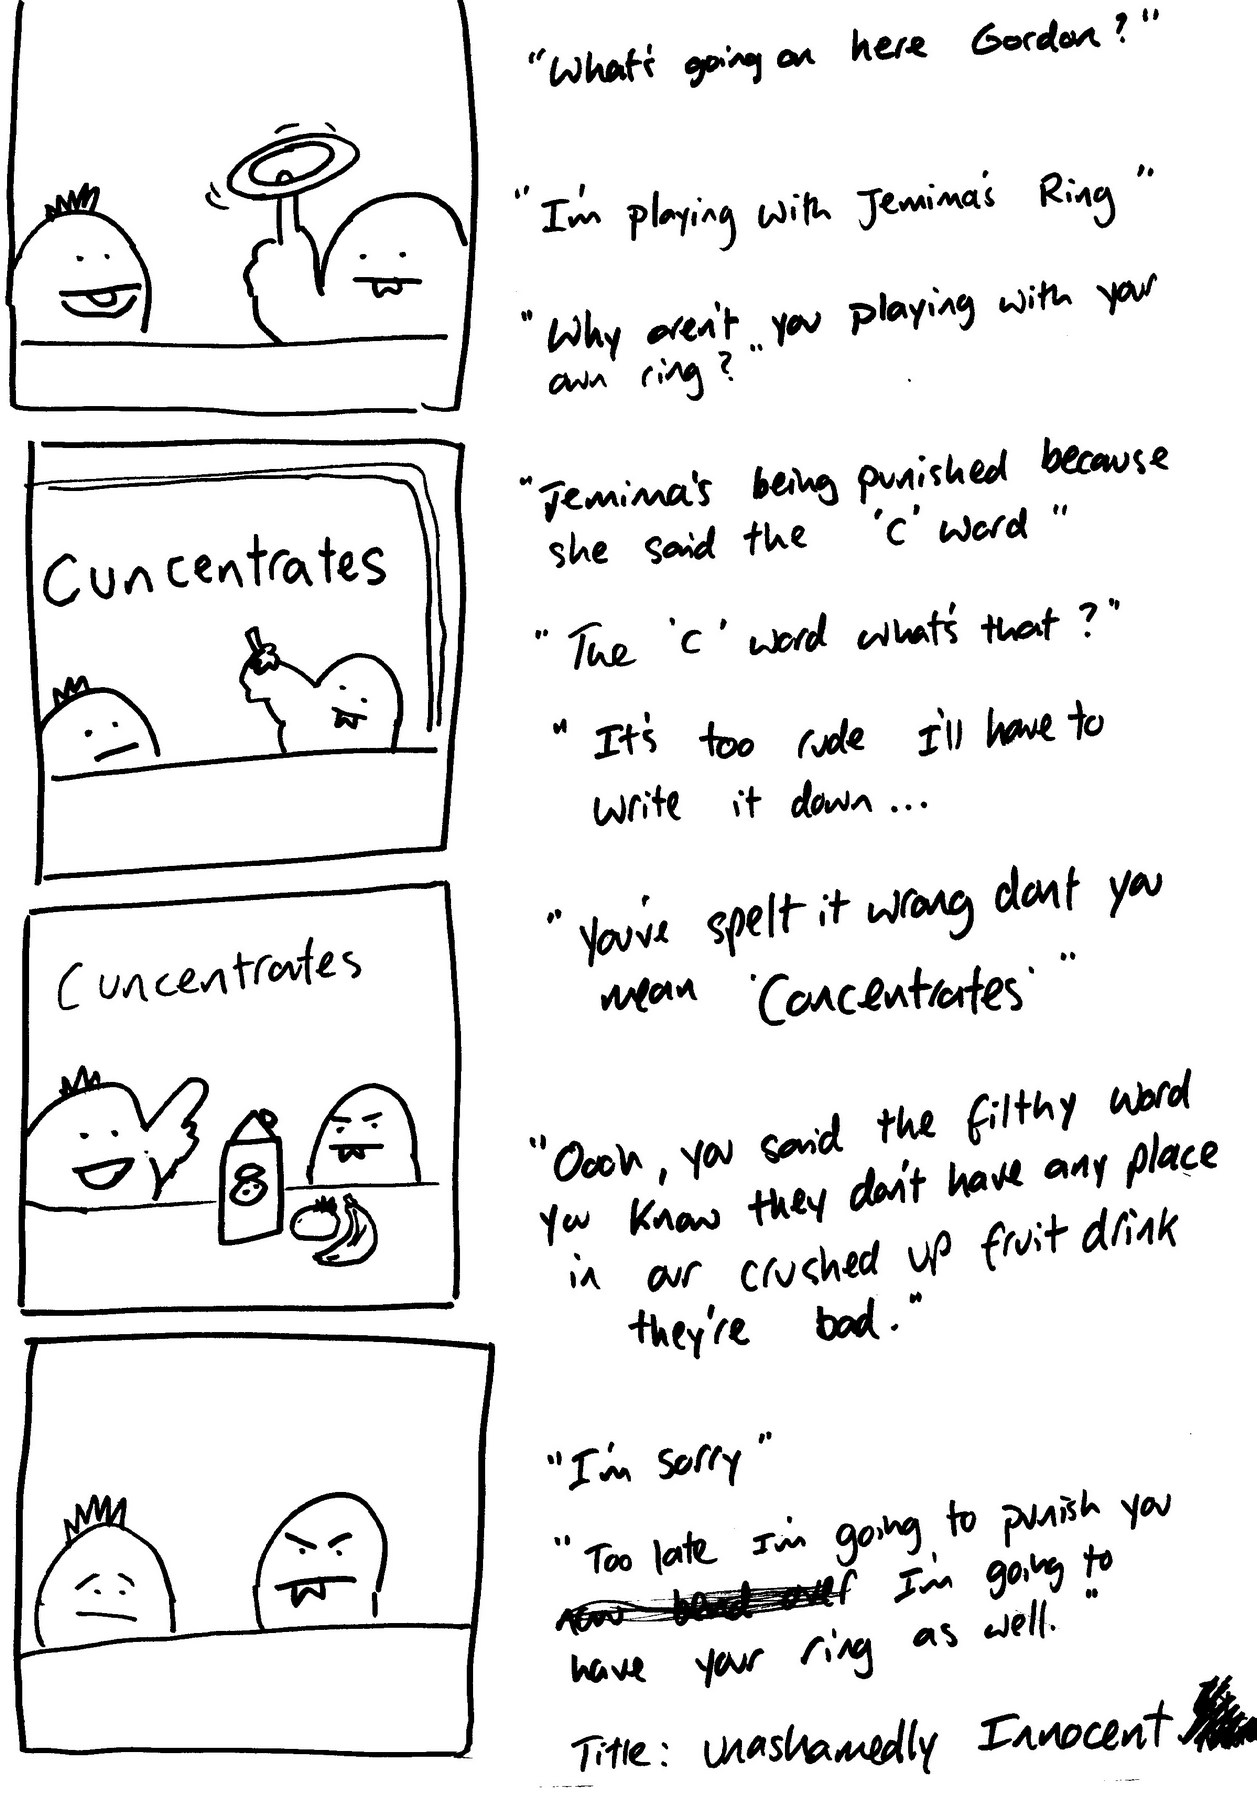 "What's going on here Gordon?"
"I'm playing with Jemima's Ring"
"Why aren't you playing with your
own ring?"
Cuncentrates
"Jemima's being punished because
she said the 'C' word"
"The 'C' word what's that?"
"It's too rude I'll have to
write it down...
Cuncentrates
"You've spelt it wrong dont you
mean 'Concentrates'"
"Oooh, you said the filthy word
you know they don't have any place
in our crushed up fruit drink
they're bad."
"I'm sorry"
"Too late I'm going to punish you
now bend over I'm going to
have your ring as well."
Title: unashamedly Innocent